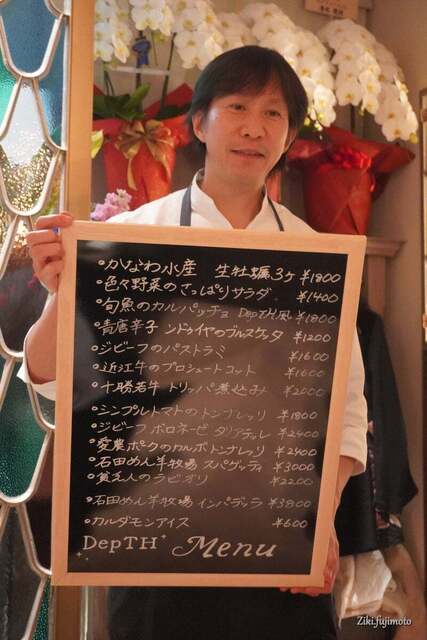 ・かなわ水産 生牡蠣 3ケ ¥1800
・色々野菜のさっぱりサラダ. ¥1400
・旬魚のカルパッチョ DepTH風 ¥1800
・青唐辛子 ンドゥイヤのブルスケッタ ¥1200
・ジビーフのパストラミ ¥1600
・近江牛のプロシュートコット ¥1600
・十勝若牛 トリッパ煮込み ¥2000
・シンプルトマトのトンナレッリ ¥1800
・ジビーフ ボロネーゼ タリアテッレ ¥2400
・愛農ポークのカルボトンナレッリ ¥2400
・石田めん羊牧場 スパゲッティ ¥3000
・貧乏人のラビオリ ¥2200
・石田めん羊牧場 インパデッラ ¥3800
・カルダモンアイス ¥600
DepTH Menu
Ziki.fujimoto